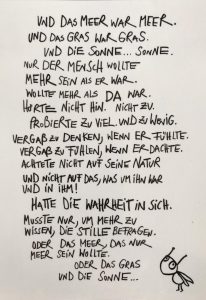 UND DAS MEER WAR MEER.
UND DAS GRAS WAR GRAS.
UND DIE SONNE... SONNE.
NUR DER MENSCH WOLLTE
MEHR SEIN ALS ER WAR.
WOLLTE MEHR ALS DA WAR.
HÖRTE NICHT HIN. NICHT ZU.
PROBIERTE ZU VIEL. UND ZU WENIG.
VERGAß ZU DENKEN, WENN ER FÜHLTE.
VERGAß ZU FÜHLEN, WENN ER DACHTE.
ACHTETE NICHT AUF SEINE NATUR
UND NICHT AUF DAS, WAS UM IHN WAR
UND IN IHM!
HATTE DIE WAHRHEIT IN SICH.
MUSSTE NUR, UM MEHR ZU
WISSEN, DIE STILLE BEFRAGEN.
ODER DAS MEER, DAS NUR
MEER SEIN WOLLTE.
ODER DAS GRAS
UND DIE SONNE...